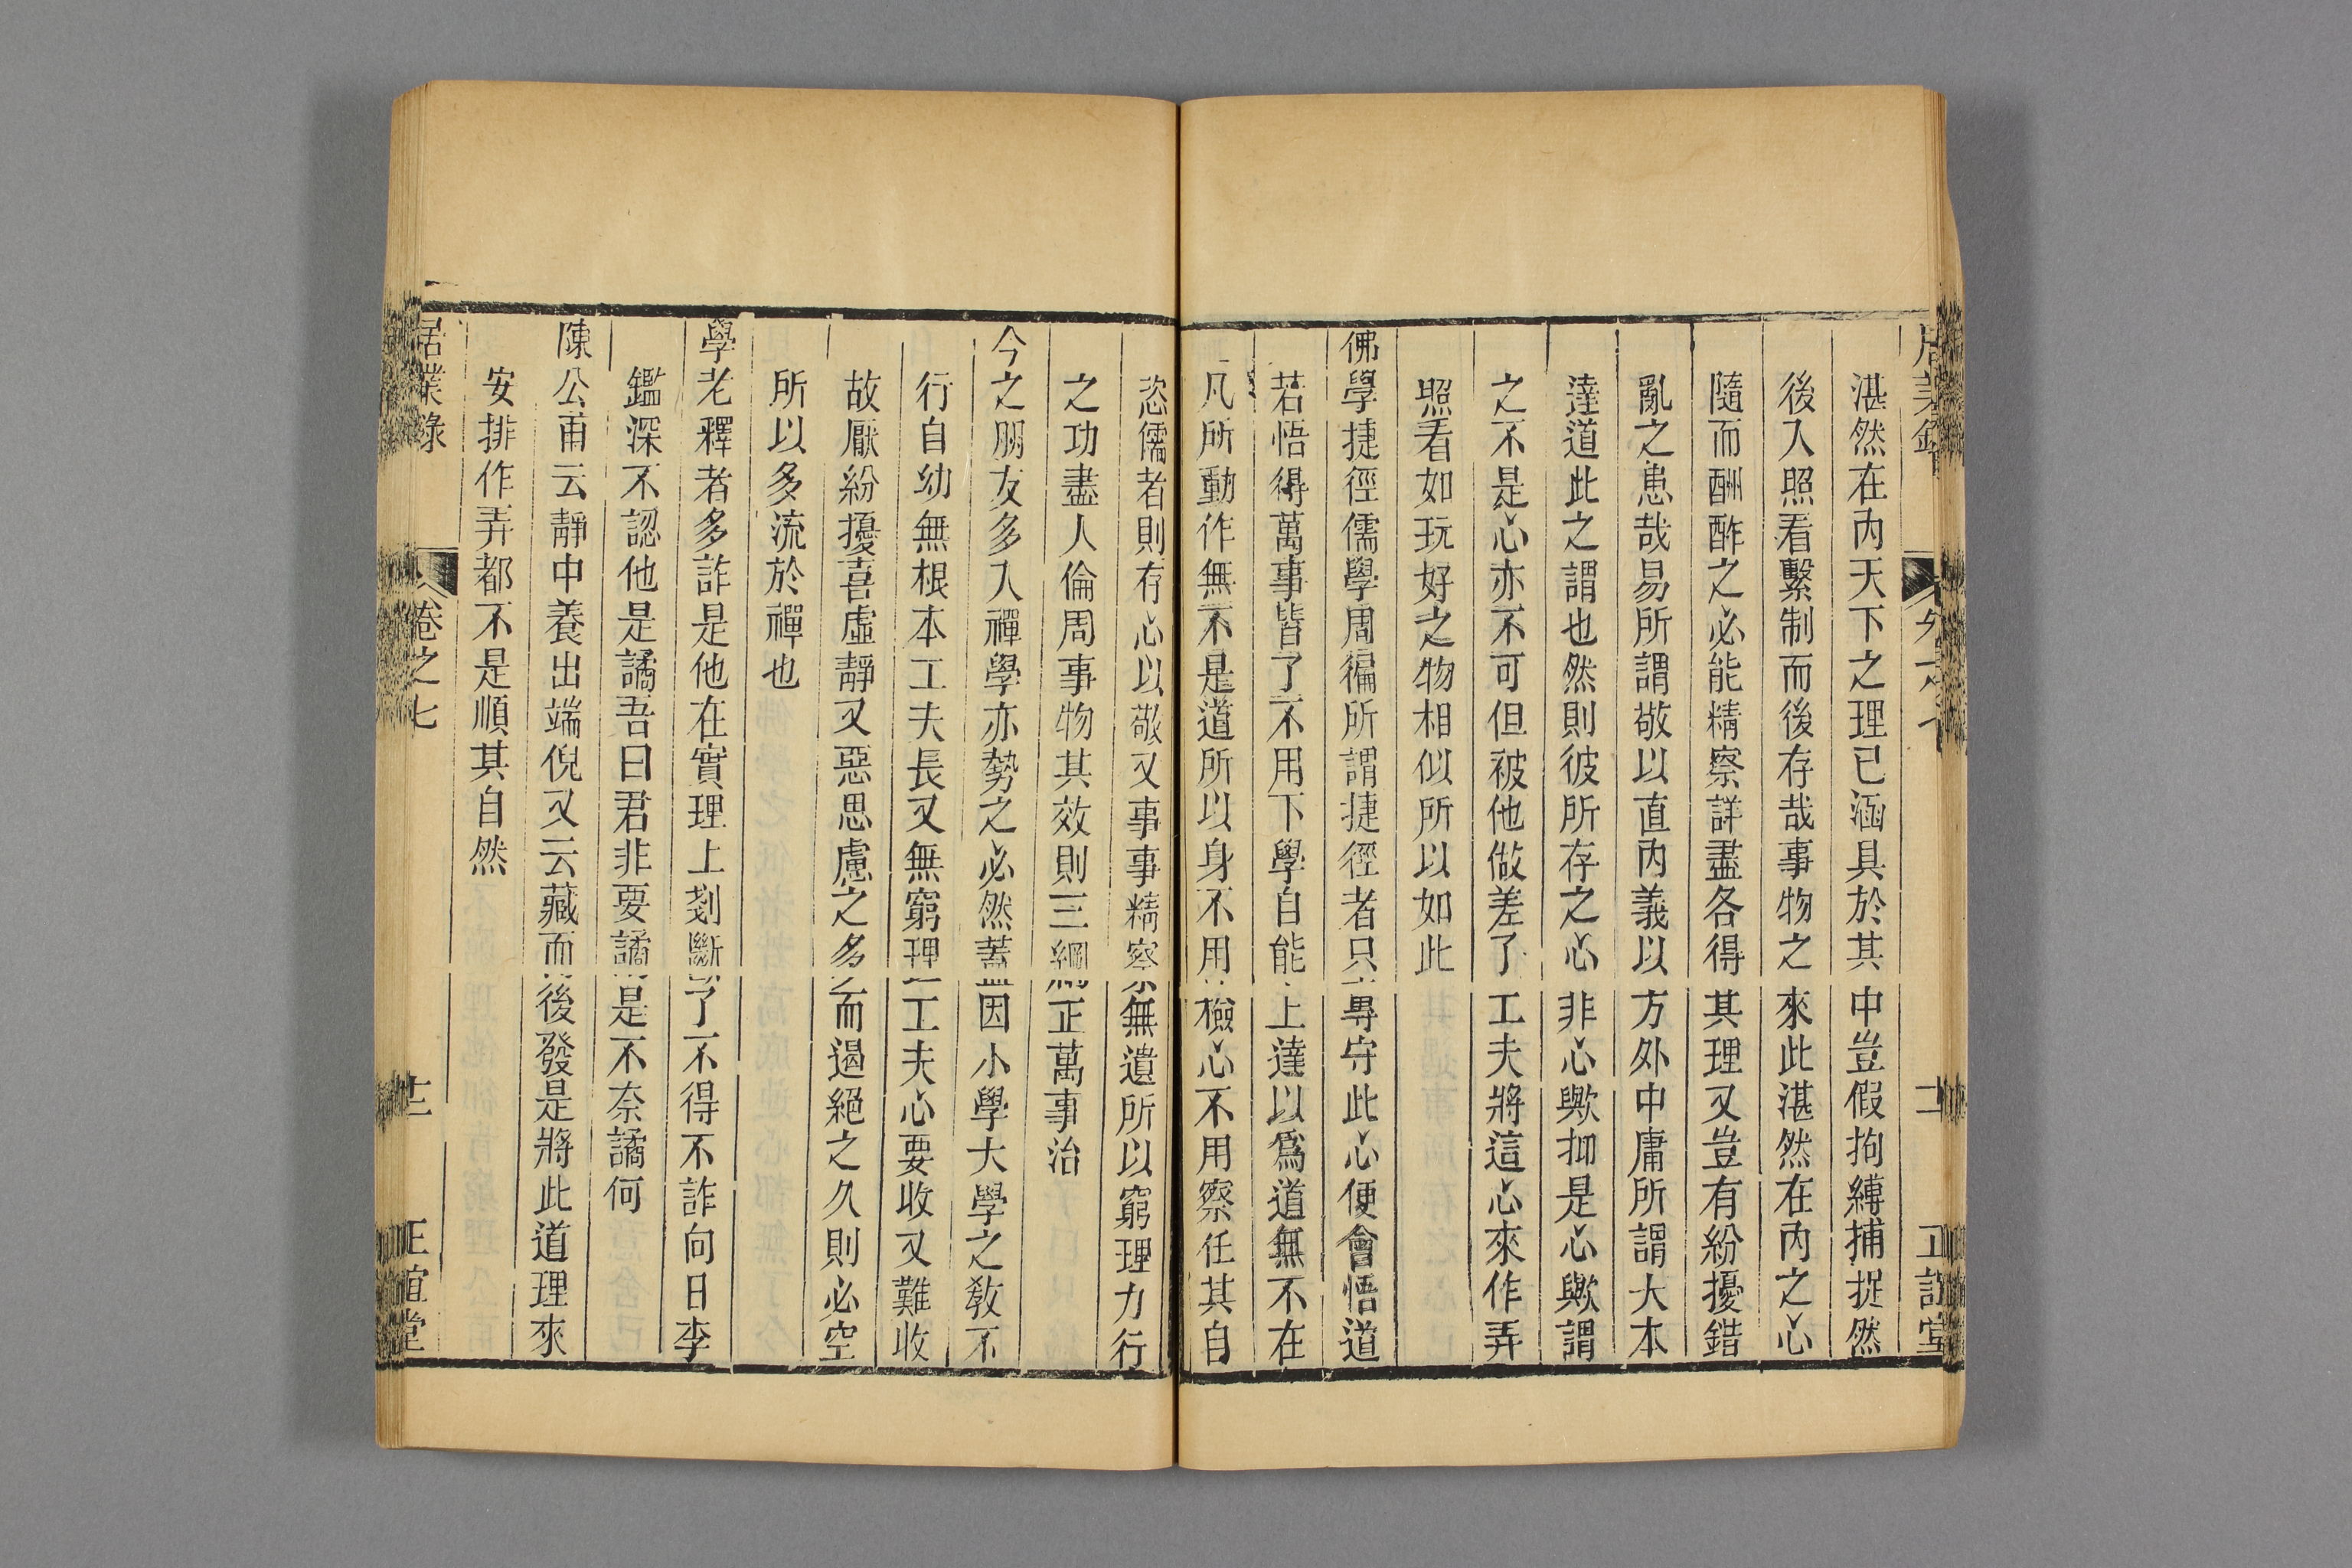 湛然在內天下之理已涵具於其中豈假拘縛捕捉然
後入照看繫制而後存哉事物之來此湛然在內之心
隨而酬酢之必能精察詳盡各得其理又豈有紛擾錯
亂之患哉易所謂敬以直內義以方外中庸所謂大本
達道此之謂也然則彼所存之心非心歟抑是心歟謂
之不是心亦不可但被他做差了工夫將這心來作弄
照看如玩好之物相似所以如此
佛學捷徑儒學周徧所謂捷徑者只專守此心便會悟道
若悟得萬事皆了不用下學自能上達以爲道無不在
凡所動作無不是道所以身不用檢心不用察任其自
恣儒者則存心以敬又事事精察無遺所以窮理力行
之功盡人倫周事物其效則三綱正萬事治
今之朋友多入禪學亦勢之必然蓋因小學大學之敎不
行自幼無根本工夫長又無窮理工夫心要收又難收
故厭紛擾喜虛靜又惡思慮之多而遏絕之久則必空
所以多流於禪也
學老釋者多詐是他在實理上剗斷了不得不詐向日李
鑑深不認他是譎吾曰君非要譎是不奈譎何
陳公甫云靜中養出端倪又云藏而後發是將此道理來
安排作弄都不是順其自然
居業錄 卷之七 十二 正誼堂